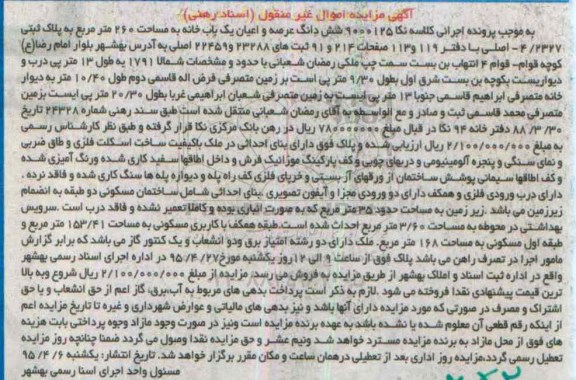 آگهی مزایده اموال غیر منقول (اسناد رهنی)
به موجب پرونده اجرائی کلاسه نکا ۹۰۰۰۱۲۵ شش دانگ عرصه و اعیان یک باب خانه به مساحت ۲۶۰ متر مربع به پلاک ثبتی
۴/۲۳۲۷ - اصلی با دفتر ۱۱۹ و ۱۱۳ صفحات ۲۱۴ و ۹۱ ثبت های ۲۳۲۸۸ و ۲۲۴۵۹ اصلی به آدرس بهشهر بلوار امام رضا(ع)
کوچه قوام- قوام ۴ انتهاب بن بست سمت چپ ملکی رمضان شعبانی با حدود و مشخصات شمالا ۱۷۹۱ به طول ۱۳ متر پی درب و
دیواریست بکوچه بن بست شرق اول بطول ۹/۳۰ متر پی است بر زمین متصرفی فرض اله قاسمی دوم طول ۱۰/۴۰ متر به دیوار
خانه متصرفی ابراهیم قاسمی جنوبا ۱۳ متر پی ایست به زمین متصرفی شعبان ابراهیمی غربا بطول ۲۰/۳۰ متر پی ایست زمین
متصرفی محمد قاسمی ثبت و صادر و مع الواسطه به آقای رمضان شعبانی منتقل شده است طبق سند رهنی شماره ۲۴۳۲۸ تاریخ
۸۸/۳/۳۰ دفتر خانه ۹۴ نکا در قبال مبلغ ۷۸۰۰۰۰۰۰۰ ریال در رهن بانک مرکزی نکا قرار گرفته و طبق نظر کارشناس رسمی
به مبلغ ۲/۱۰۰/۰۰۰/۰۰۰ ریال ارزیابی شده و پلاک فوق دارای بنای احداثی در ملک باکیفیت ساخت اسکلت فلزی و طاق ضربی
و نمای سنگی و پنجره آلومینیومی و دربهای چوبی و کف پارکینگ موزائیک فرش و داخل اطاقها سفید کاری شده ورنگ آمیزی شده
و کف اطاقها سیمانی پوشش ساختمان از ورقهای آزبستی و خرپای فلزی کف راه پله و دیواره پله ها سنگ کاری شده و فاقد نرده
دارای درب ورودی فلزی و همکف دارای دو ورودی مجزا و آیفون تصویری بنای احداثی شامل ساختمان مسکونی دو طبقه به انضمام
زیرزمین می باشد .زیر زمین به مساحت حدود ۳۵ متر مربع که به صورت انباری بوده و کاملا تعمیر نشده و فاقد درب است .سرویس
بهداشتی در محوطه به مساحت ۳/۶۰ متر مربع احداث شده است.طبقه همکف با کاربری مسکونی به مساحت ۱۵۳/۴۱ متر مربع و
طبقه اول مسکونی به مساحت ۱۶۸ متر مربع. ملک دارای دو رشته امتیاز برق ودو انشعاب و یک کنتور گاز می باشد که برابر گزارش
مامور اجرا در تصرف راهن می باشد پلاک فوق از ساعت ۹ الی ۱۲ روز یکشنبه مورخ ۹۵/۴/۲۷ در اداره اجرای اسناد رسمی بهشهر
واقع در اداره ثبت اسناد و املاک بهشهر از طریق مزایده به فروش می رسد. مزایده از مبلغ ۲/۱۰۰/۰۰۰/۰۰۰ ریال شروع وبه بالا
ترین قیمت پیشنهادی نقدا فروخته می شود .لازم به ذکر است پرداخت بدهی های مربوط به آب،برق، گاز اعم از حق انشعاب و یا حق
اشتراک و مصرف در صورتی که مورد مزایده دارای آنها باشد و نیز بدهی های مالیاتی و عوارض شهرداری و غیره تا تاریخ مزایده اعم
از اینکه رقم قطعی آن معلوم شده یا نشده باشد به عهده برنده مزایده است ونیز در صورت وجود مازاد وجوه پرداختی بابت هزینه
های فوق از محل مازاد به برنده مزایده مسترد خواهد شد ونیم عشر و حق مزایده نقدا وصول می گردد ضمنا چنانچه روز مزایده
تعطیل رسمی گردد،مزایده روز اداری بعد از تعطیلی درهمان ساعت و مکان مقرر برگزار خواهد شد. تاریخ انتشار: یکشنبه ۹۵/۴/۶
مسئول واحد اجرای اسنا رسمی بهشهر